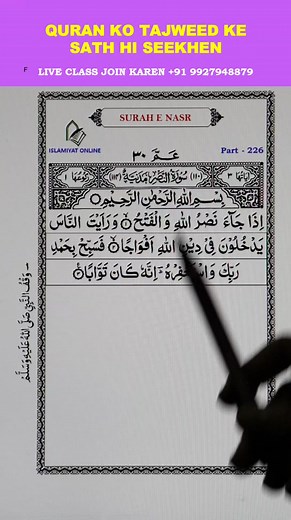 QURAN KO TAJWEED KE
SATH HI SEEKHEN
F LIVE CLASS JOIN KAREN +91 9927948879
SURAH E NASR
ISLAMIYAT ONLINE
Part - 226
عَمَّ ٣٠
اٰيَاتُهَا ٣ (١١٠) سُوْرَةُ النَّصْرِ مَدَنِيَّةٌ (١١٤) رُكُوْعُهَا ١
بِسْمِ اللّٰهِ الرَّحْمٰنِ الرَّحِيْمِ
اِذَا جَآءَ نَصْرُ اللّٰهِ وَ الْفَتْحُ ۙ وَ رَاَيْتَ النَّاسَ
يَدْخُلُوْنَ فِىْ دِيْنِ اللّٰهِ اَفْوَاجًا ۙ فَسَبِّحْ بِحَمْدِ
رَبِّكَ وَ اسْتَغْفِرْهُ ؔ اِنَّهٗ كَانَ تَوَّابًا
وَقْفُ النَّبِيِّ صَلَّى اللّٰهُ عَلَيْهِ وَسَلَّمَ